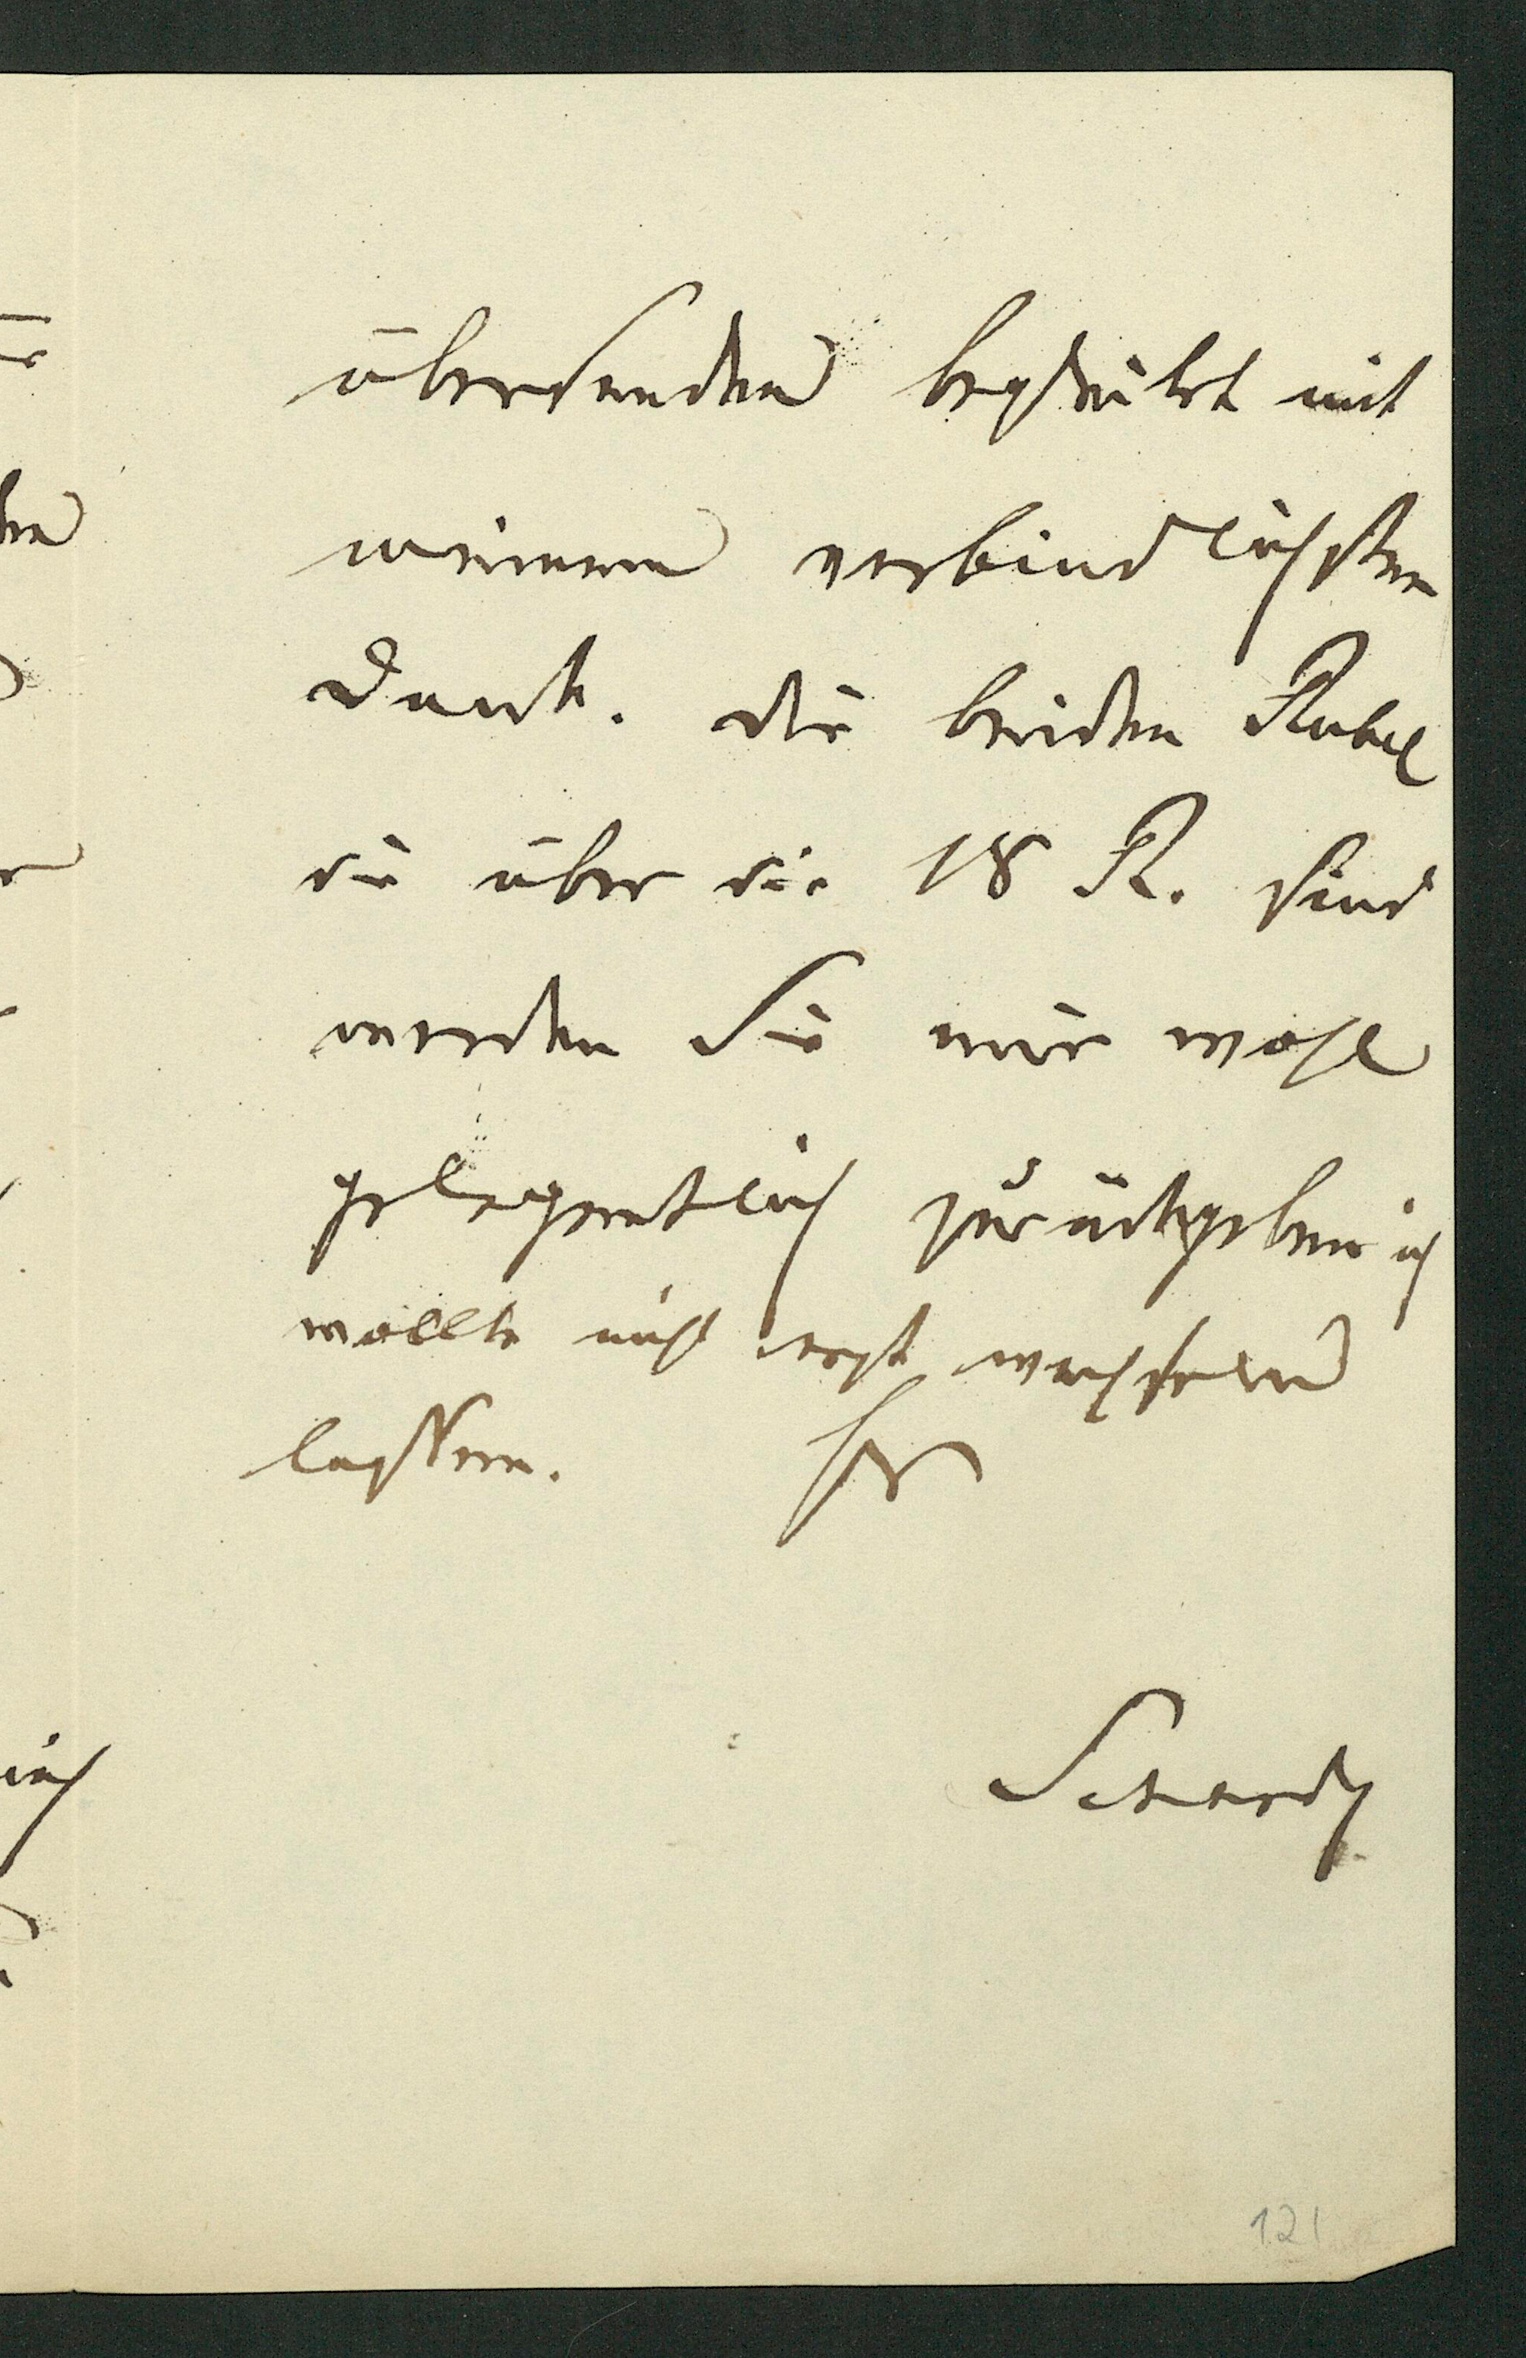 übersenden begleitet mit
meinem verbindlichsten
Dank. Die beiden Rubel
die über die 18 R. sind
werden Sie mir wohl
gelegentlich zurückgeben ich
wollte nicht erst wechseln
lassen. Ihr
121